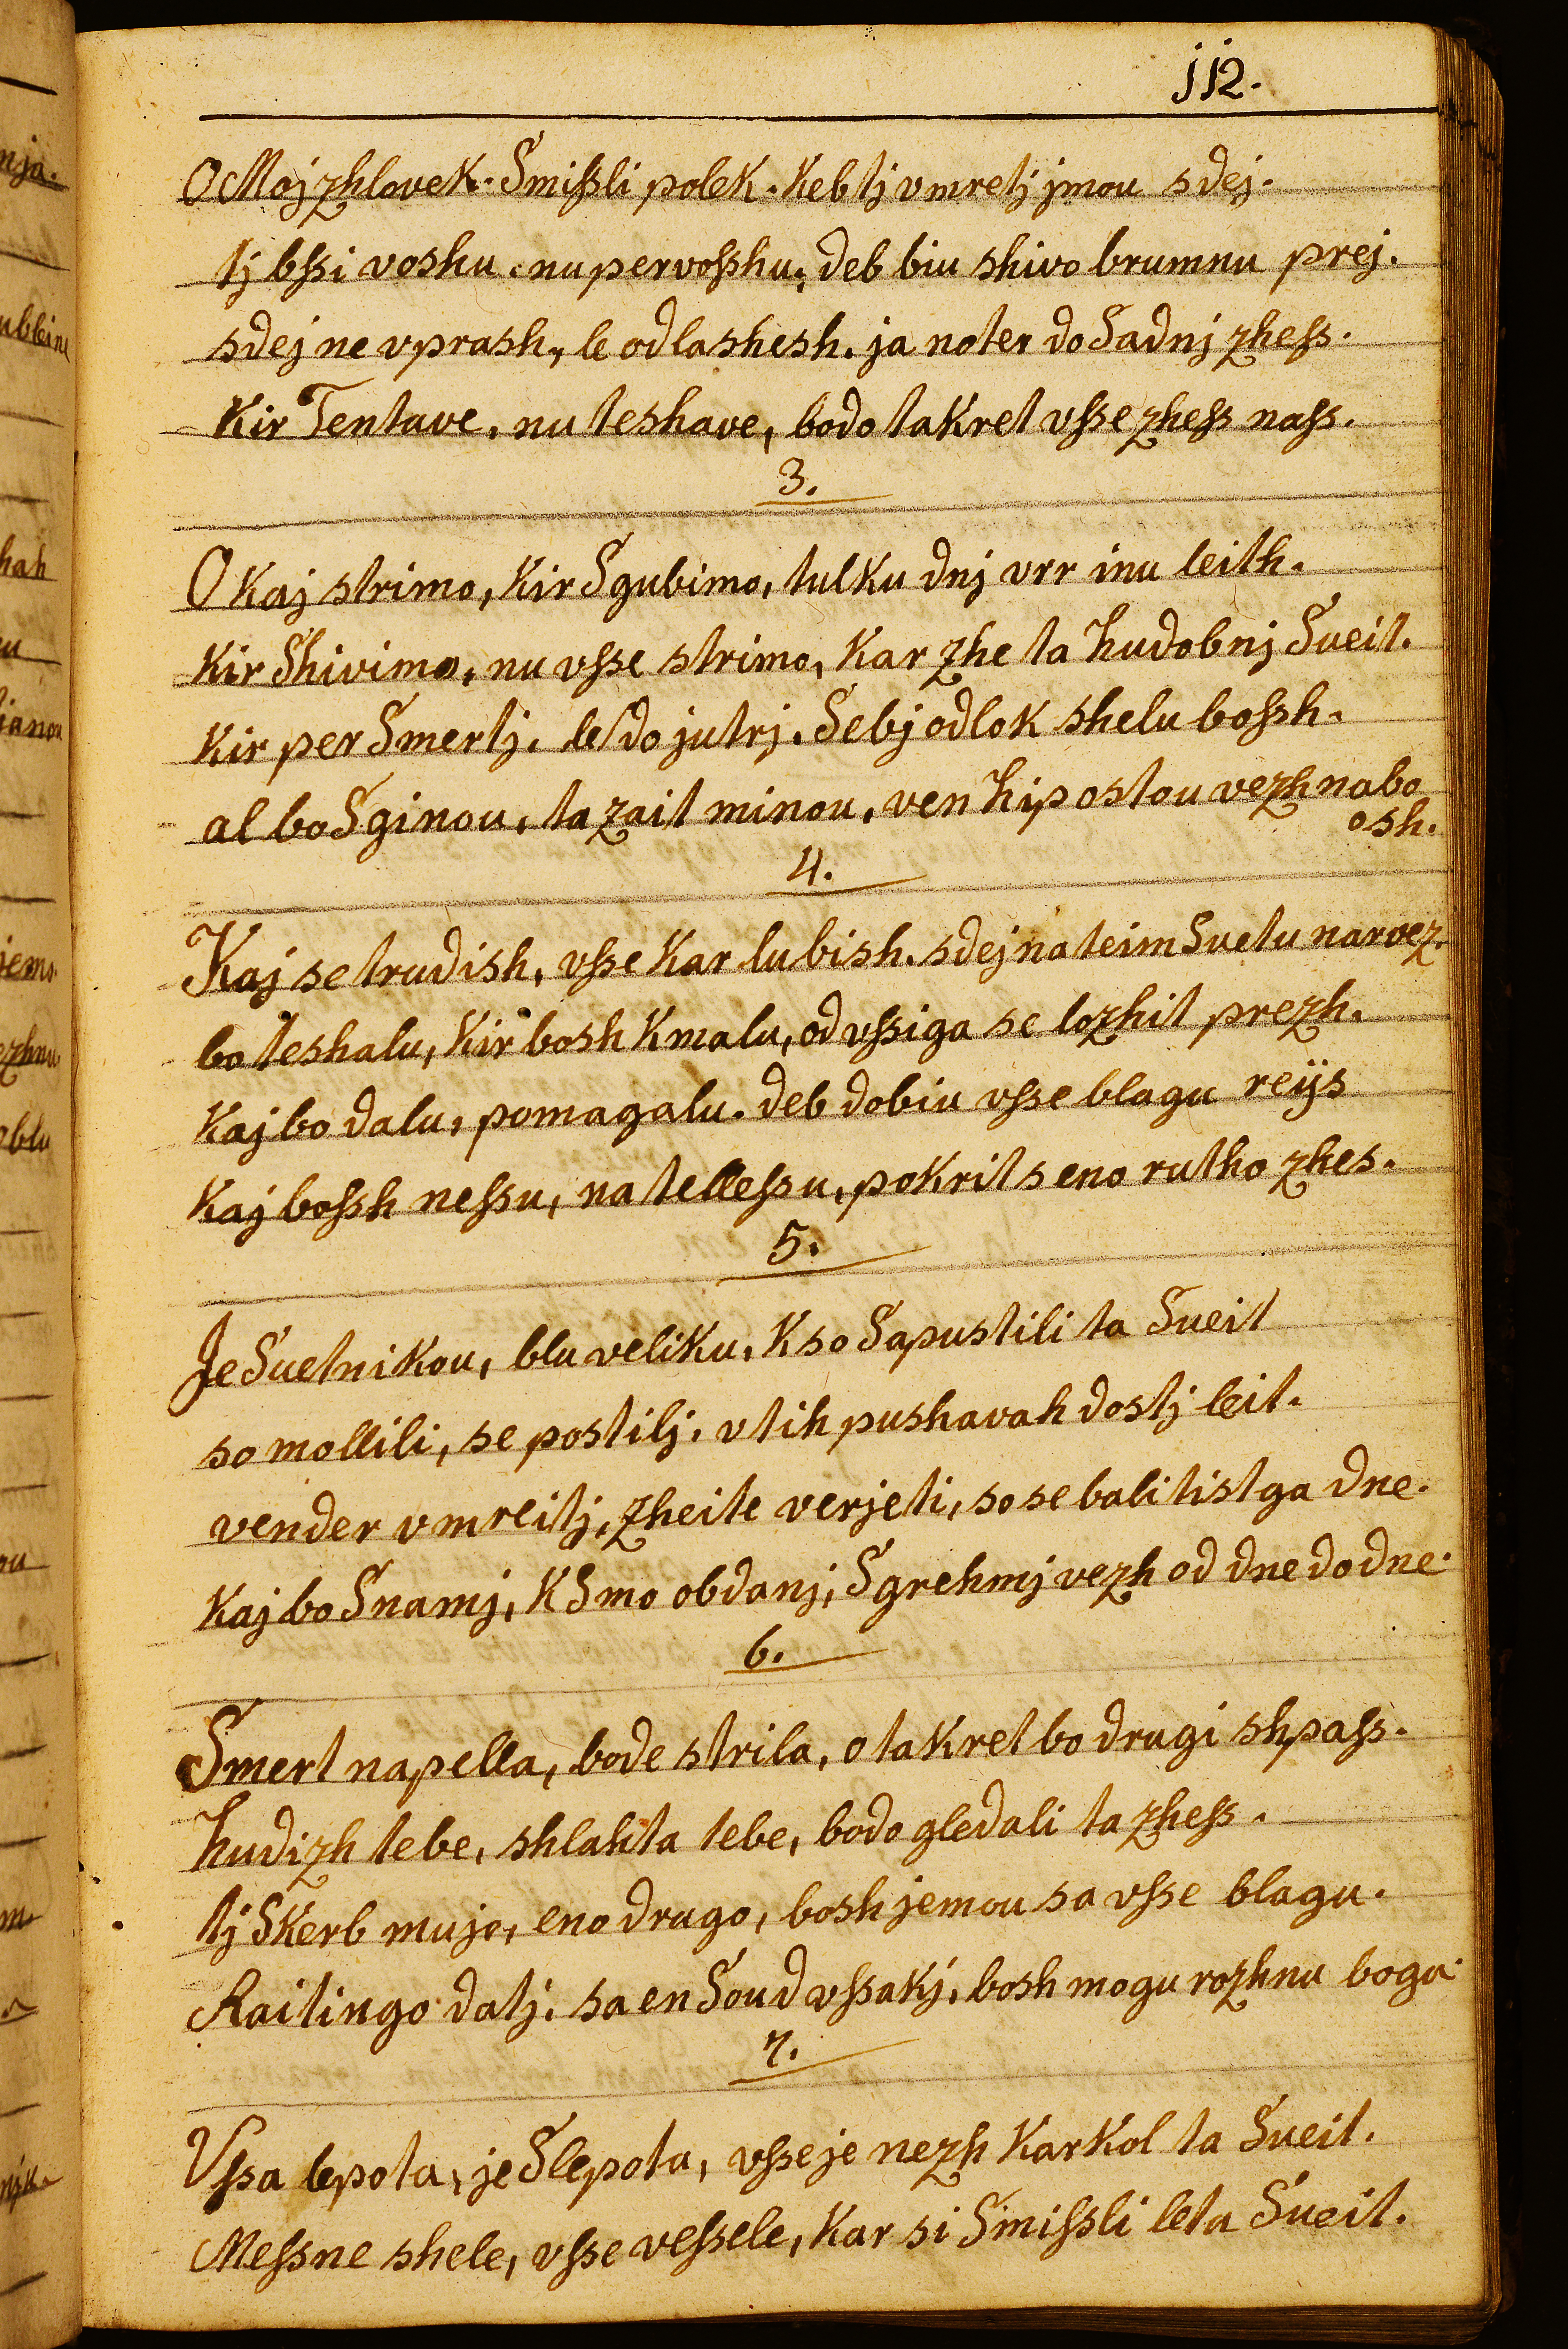 112.
O Moj zhlovek. Smißli polek. Keb tj vmretj jmou sdej.
tj bßi voshu. nu pervoßhu, deb biu shivo brumnu prej.
sdej ne vprash, le odlashesh. ja noter do Sadnj zheß.
Kir Tentave, nu teshave, bodo takret vße zheß naß.
3.
O Kaj strimo, Kir Sgubimo, tulku dnj vrr inu leith.
Kir Shivimo, nu vße strimo, Kar zhe ta hudobnj Sveit.
Kir per Smertj. le do jutrj. Sebj odlok shelu boßh.
al bo Sginou, ta zait minou, ven hipostou vezh nabo
osh.
4.
Kaj se trudish, vße Kar lubish. sdej na teim Suetu narvez.
bo teshalu, Kir bosh Kmalu, od vßiga se lozhit prezh.
Kaj bo dalu, pomagalu. deb dobiu vße blagu reijs
Kaj boßh neßu, na telleßu, pokrit s eno rutho zhes.
5.
Je Suetnikou, blu veliku, K so Sapustili ta Sueit
so mollili, se postilj. v tih pushavah dostj leit.
vender vmreitj, zheite verjeti, so se bali tistga dne.
Kaj bo Snamj, K Smo obdanj, S grehmj vezh od dne do dne.
6.
Smert napella, bode strila, o takret bo drugi shpaß.
hudizh tebe, shlahta tebe, bodo gledali ta zheß.
tj Skerb mujo, eno drugo, bosh jemou sa vße blagu.
Raitingo datj. sa en Soud vßakj. bosh mogu rozhnu bogu.
7.
Vßa lepota, je Slepota, vße je nezh Kar Kol ta Sueit.
Meßne shele, vße veßele, Kar si Smißli leta Sueit.